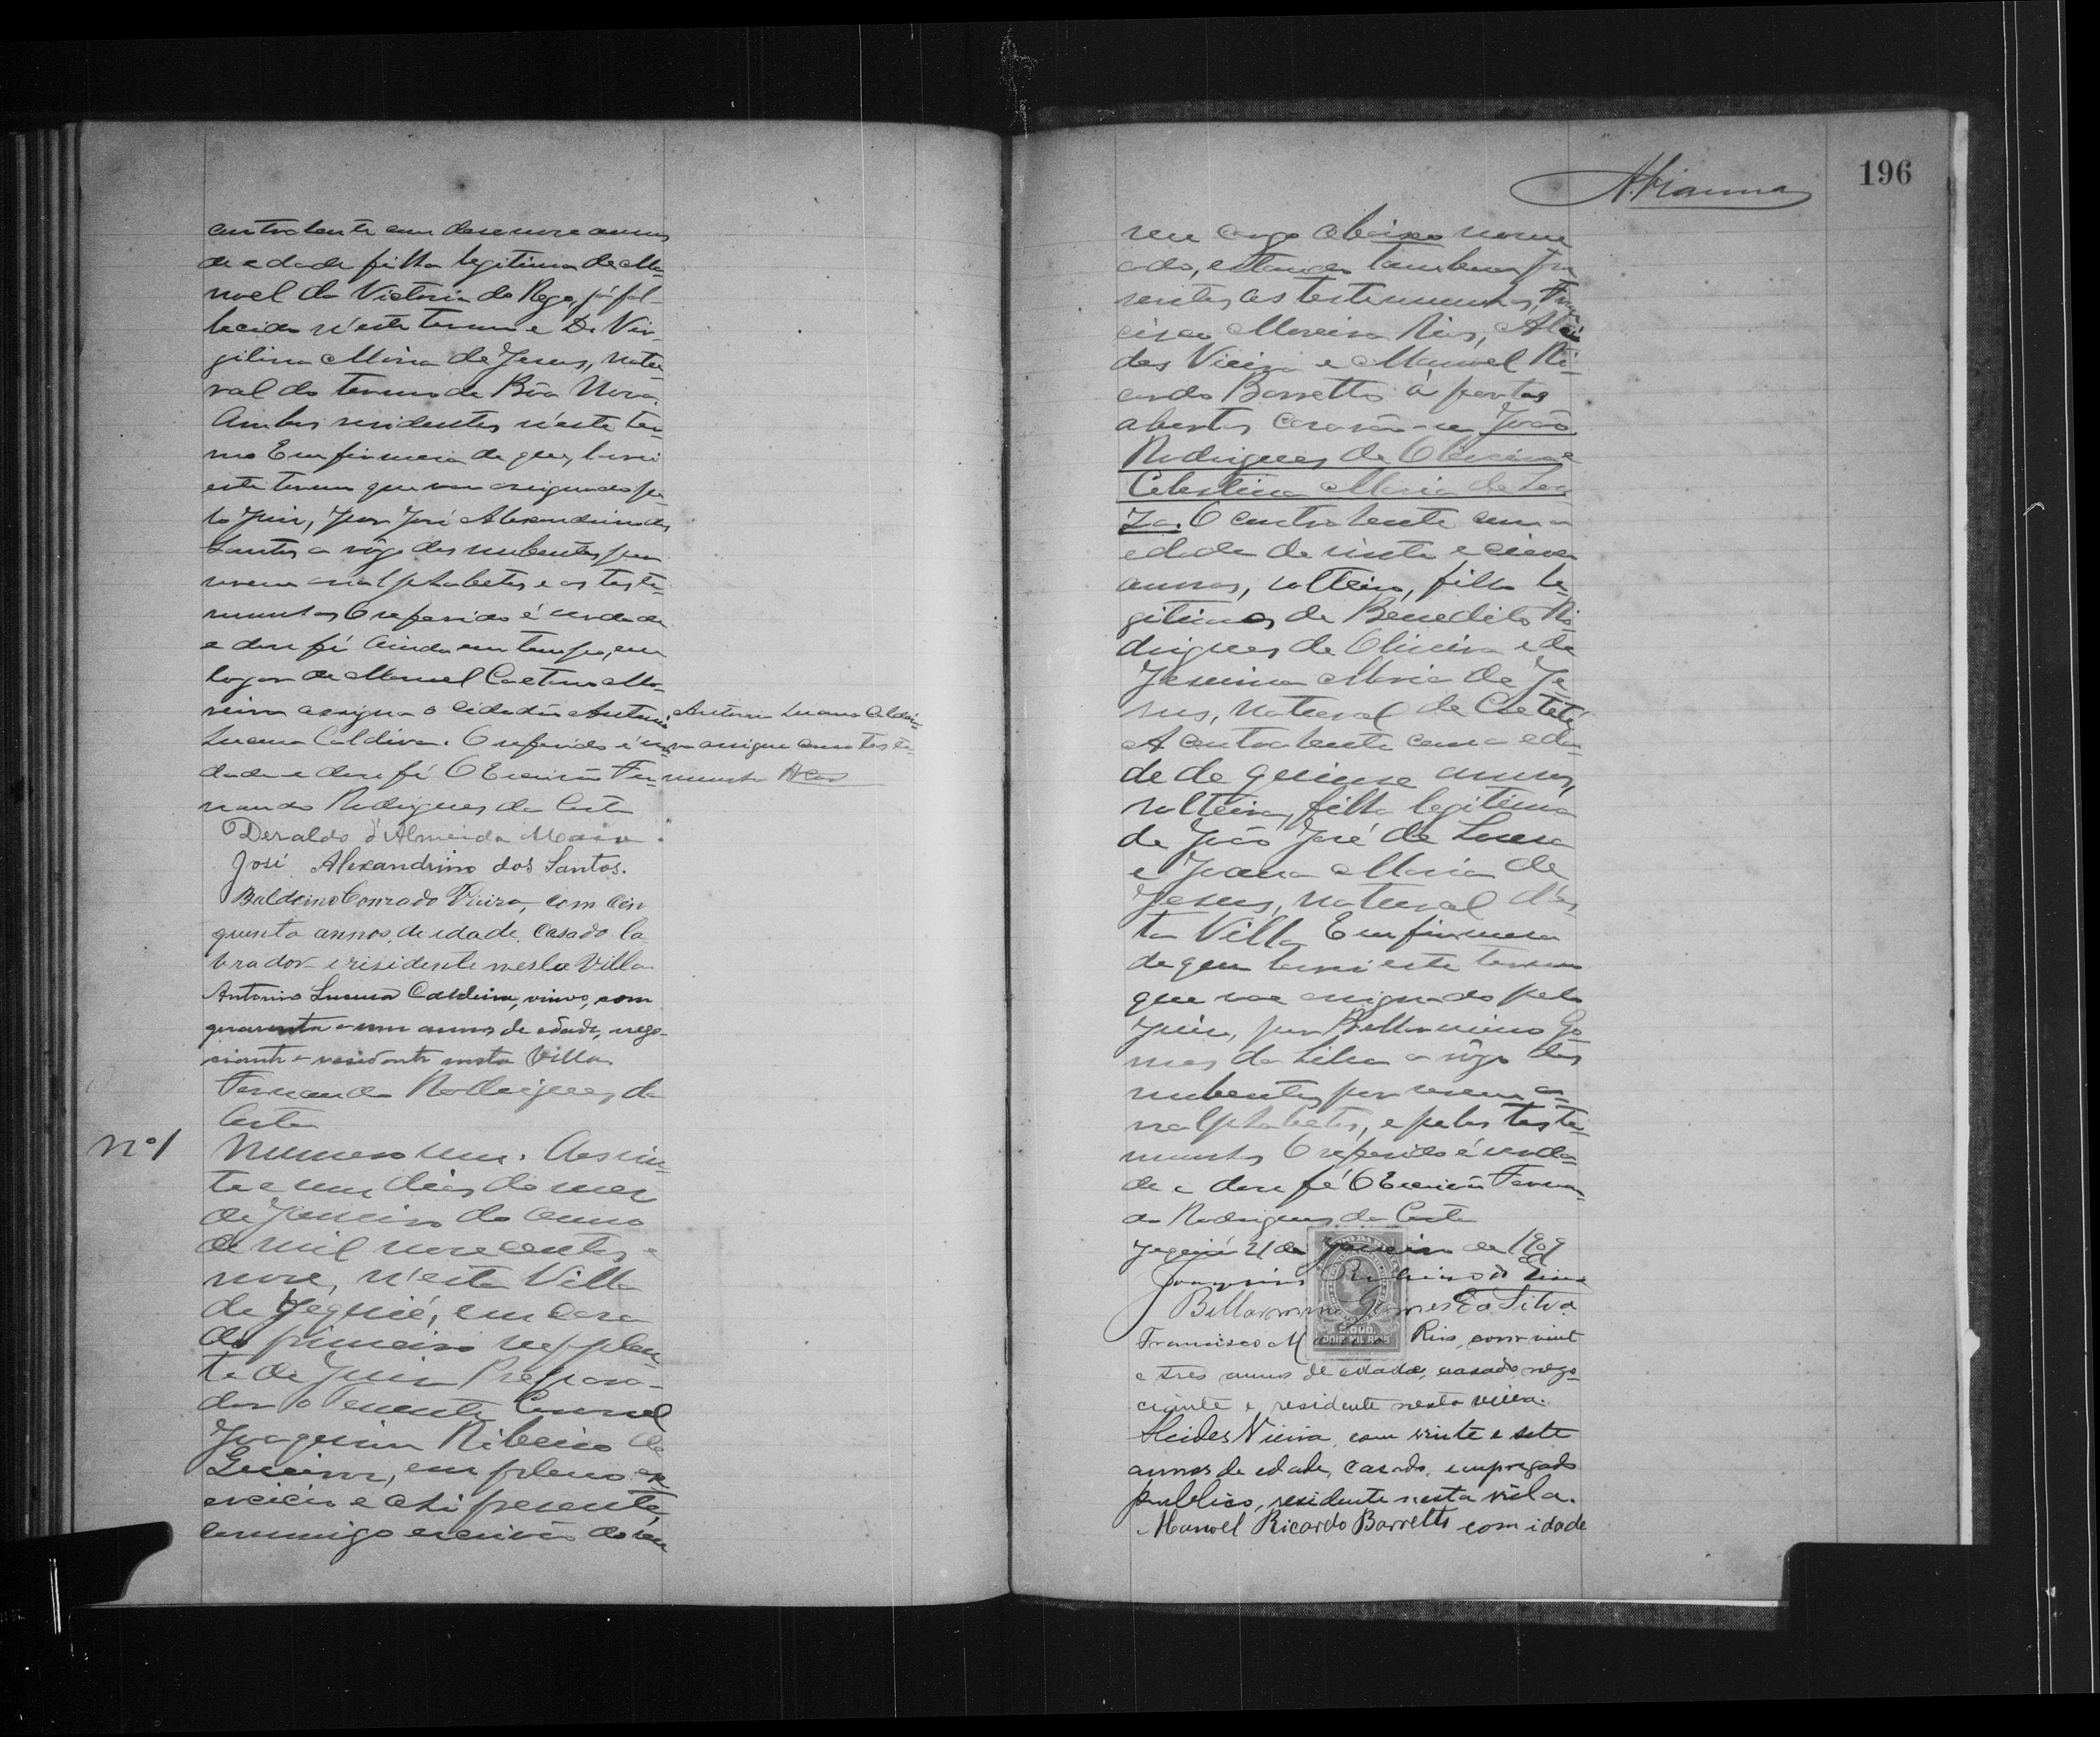 contrahente com desenove annos
de edade filha legitima de Ma-
noel da Victoria do Rego, já fal-
lecido n'este termo e D. Vir-
gilina Maria de Jesus, natu-
ral do termo da Bôa Nova.
Ambos residentes n'este ter-
mo Em firmesa de que, lavrei
este termo que vae assignado pe-
lo Juiz, por José Alexandrino dos
Santos a rôgo dos nubentes por
serem analphabetos e as teste-
munhas O referido é verdade
e dou fé Ainda em tempo, em
logar de Manoel Caetano Mo-
reira assigna o Cidadão Antonio
Lucena Caldeira. O referido é ver-
dade e dou fé O Escrivão Fer-
nando Rodrigues da Costa
Antonio Lucena Caldei-
ra assigna como teste-
munha
Deraldo d'Almeida
José Alexandrino dos Santos.
Baldoino Conrado Vieira, com cin
quenta annos de idade, casado la
vrador e risidente nesta Villa
Antonio Lucena Caldeira, viuvo, com
quarenta e um annos de edade, nego-
ciante e residente nesta Villa.
Fernando Rodrigues da
Costa
Nº 1
Numero um. Aos vin-
te e um dias do mez
de Janeiro do anno
de mil novecentos e
nove, n'esta Villa
de Jequié, em casa
do primeiro supplen-
te de Juiz Prepara-
dor o Tenente Coronel
Joaquim Ribeiro de
em pleno ex
ercicio e ahi presente,
commigo escrivão do
196
A. Vianna
seu cargo abaixo nome
ado, estando tambem pre
sentes as testemunhas, Fran
cisco Moreira Rios, Alci
des Vieira e Manoel Ri-
cardo Barretto á portas
abertas casarão-se João
Rodrigues de Oliveira e
Celestina Maria de Sou
za. O contrahente com a
edade de vinte e cinco
annos, solteiro, filho le-
gitimo de Benedito Ro-
drigues de Oliveira e de
Jesuina Maria de Je-
sus, natural de Caeteté
A contrahente com a eda-
de de quinse annos,
solteira, filha legitima
de João José de Sousa
e Joana Maria de
Jesus, natural d'es-
ta Villa Em firmesa
de que lavrei este termo
que vae assignado pelo
Juiz, por Bellarmino Go-
mes da Silva a rôgo dos
nubentes por serem a-
nalphabetos, e pelas teste-
munhas O referido é verda-
de e dou fé O Escrivão Fernan-
do Rodrigues da Costa
Jequié 21 de Janeiro de 1909
Joaquim Ribeiro de
Bellarmino Gomes da Silva
Francisco M Rios, com vint
e tres annos de edade, casado nego-
ciante e residente nesta villa.
Alcides Vieira, com vinte e sete
annos de edade, casado, empregado
publico, residente nesta villa.
Manoel Ricardo Barretto com idade
2.000
DOIS MIL RÉIS